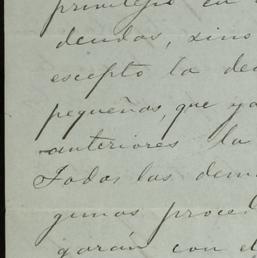 privilegio en
deudas, sino
escepto la de
pequeñas, que ya
anteriores la
Todas las dem
gunas proce
garán con el